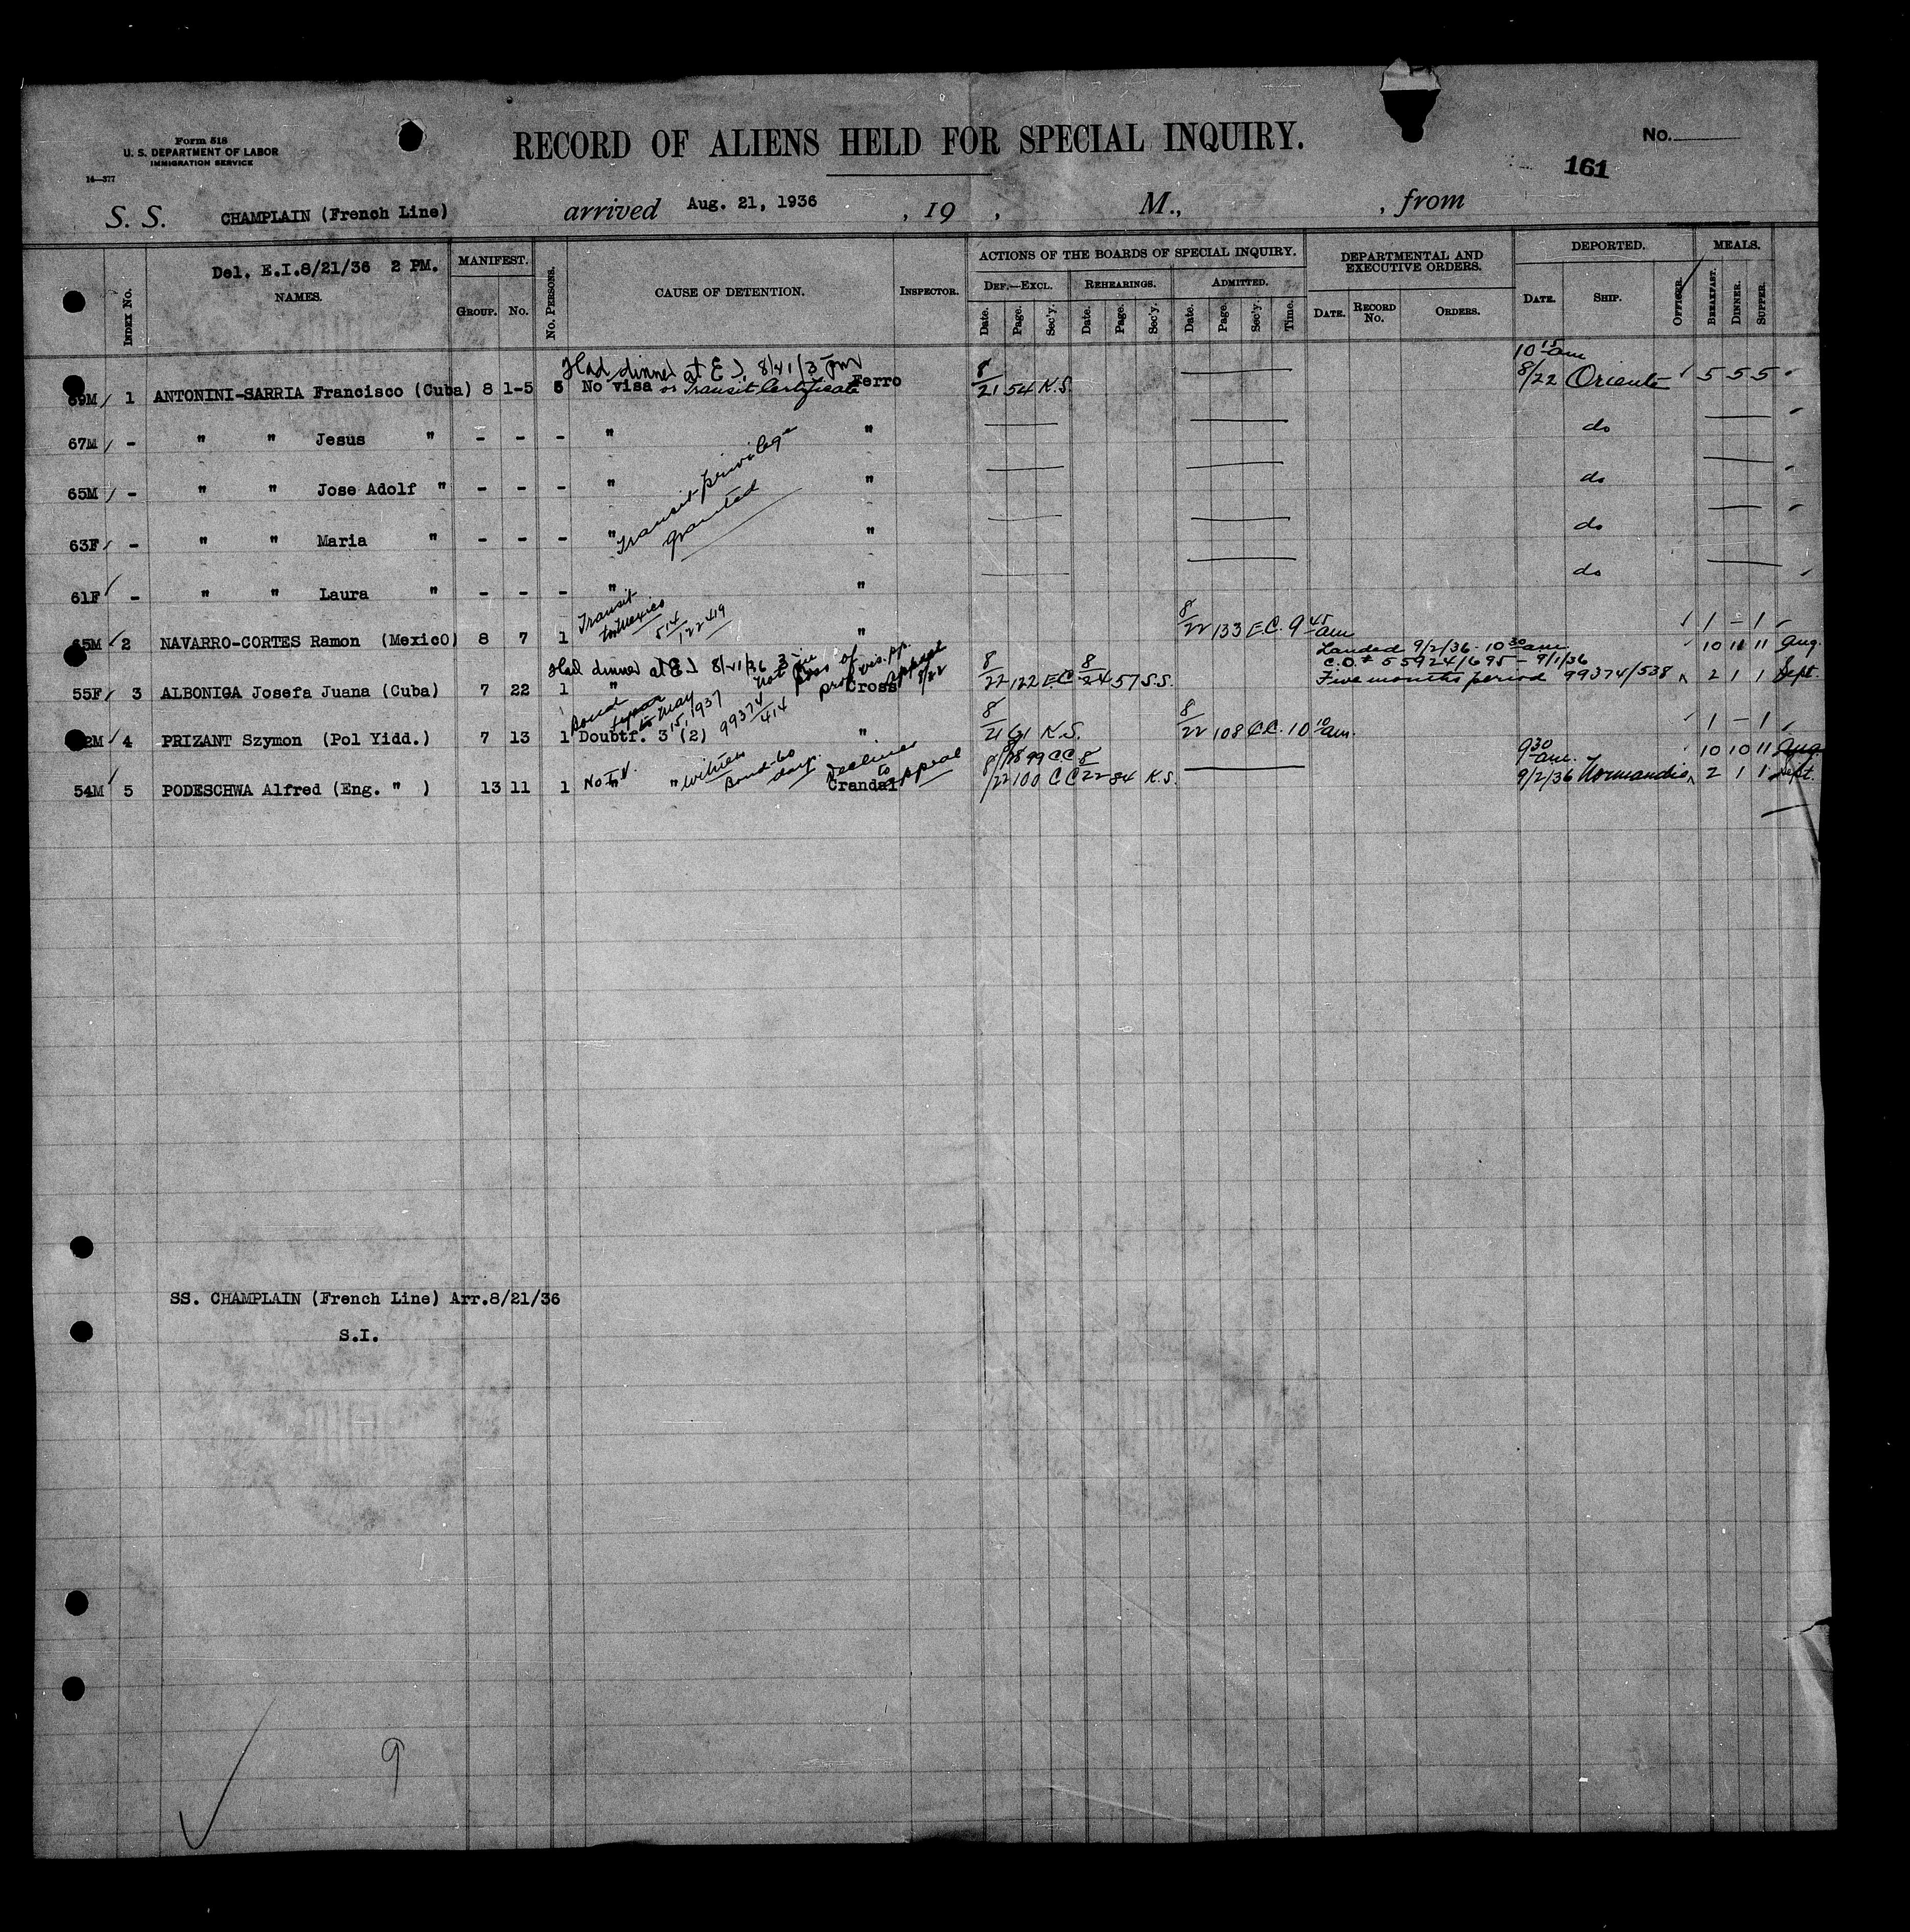 Form 518
U. S. DEPARTMENT OF LABOR
IMMIGRATION SERVICE
14—377
RECORD OF ALIENS HELD FOR SPECIAL INQUIRY.
No.
161
S. S. CHAMPLAIN (French Line) arrived Aug. 21, 1936 , 19 , M., , from
Del. E.I.8/21/36 2 PM.
INDEX No. NAMES. MANIFEST. GROUP. No. No. PERSONS. CAUSE OF DETENTION. INSPECTOR. ACTIONS OF THE BOARDS OF SPECIAL INQUIRY. DEPARTMENTAL AND EXECUTIVE ORDERS. DEPORTED. MEALS.
DEF.—EXCL. REHEARINGS. ADMITTED.
Date. Page. Sec'y. Date. Page. Sec'y. Date. Page. Sec'y. Time. DATE. RECORD No. ORDERS. DATE. SHIP. OFFICER. BREAKFAST. DINNER. SUPPER.
Had dinner at E I. 10 15 am
69M 1 ANTONINI-SARRIA Francisco (Cuba) 8 1-5 5 No visa or Transit Certificate Ferro 8/21 54 K.S. 8/22 Oriente 5 5 5
67M - " " Jesus " - - - " " do
65M - " " Jose Adolf " - - - " " do
Transit privilege granted
63F - " " Maria " - - - " " do
61F - " " Laura " - - - " " do
Transit to Mexico
65M 2 NAVARRO-CORTES Ramon (MexicO) 8 7 1 " 8/22 133 E.C. 9 45 am 1 - 1
Had dinner at E I 8/21/36 Landed 9/2/36 - 10 30 am 10 11 11 Aug.
C.O.# 55924/695 - 9/1/36
55F 3 ALBONIGA Josefa Juana (Cuba) 7 22 1 " Cross Appeal 8/22 8/22 122 E.C. 8/24 57 S.S. Five months period 99374/538 2 1 1 Sept.
Bond to May 15, 1937 99374/414
4 PRIZANT Szymon (Pol Yidd.) 7 13 1 Doubtf. 3 (2) " 8/21 61 K.S. 8/22 108 C.C. 10 10 am. 1 - 1
No I.V. witness Declines to appeal 99 CC 9 30 am. 10 10 11 Aug.
54M 5 PODESCHWA Alfred (Eng. " ) 13 11 1 " " Crandal 8/22 100 CC 8/22 84 K.S. 9/2/36 Normandie 2 1 1 Sept.
SS. CHAMPLAIN (French Line) Arr.8/21/36
S.I.
9